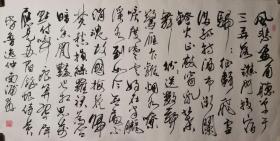 风悲画角听单于
三弄落谯门投宿
骎骎征骑飞雪
满孤村酒市渐阑
灯火正敲窗乱叶
舞纷纷送数声
惊雁下离烟水嘹
唳度寒云好在半胧
溪月到如今无处不
销魂故国梅花归
梦愁损绿罗裙为
问暗香闲艳也相思万
点付啼痕算翠屏
应是两眉余恨倚黄
昏鲁逸仲南浦